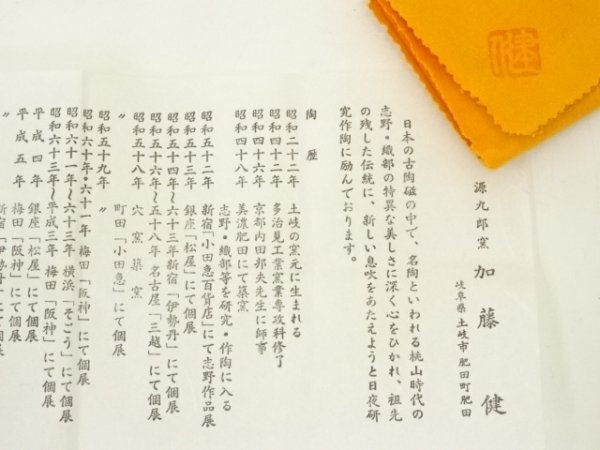 健
源九郎窯 加藤 健
岐阜県土岐市肥田町肥田
日本の古陶磁の中で、名陶といわれる桃山時代の
志野・織部の特異な美しさに深く心をひかれ、祖先
の残した伝統に、新しい息吹をあたえようと日夜研
究作陶に励んでおります。
陶歴
昭和二十二年 土岐の窯元に生まれる
昭和四十二年 多治見工業窯業専攻科修了
昭和四十六年 京都内田邦夫先生に師事
昭和四十八年 美濃肥田にて築窯
志野・織部等を研究・作陶に入る
昭和五十二年 新宿「小田急百貨店」にて志野作品展
昭和五十三年 銀座「松屋」にて個展
昭和五十四年〜六十三年 新宿「伊勢丹」にて個展
昭和五十六年〜五十八年 名古屋「三越」にて個展
昭和五十八年 穴窯築窯
〃 町田「小田急」にて個展
昭和五十九年
昭和六十年・六十一年 梅田「阪神」にて個展
昭和六十一年〜六十三年 横浜「そごう」にて個展
昭和六十三年〜平成三年 梅田「阪神」にて個展
平成四年 銀座「松屋」にて個展
平成五年 梅田「阪神」にて個展
〃 新宿「伊勢丹」にて個展